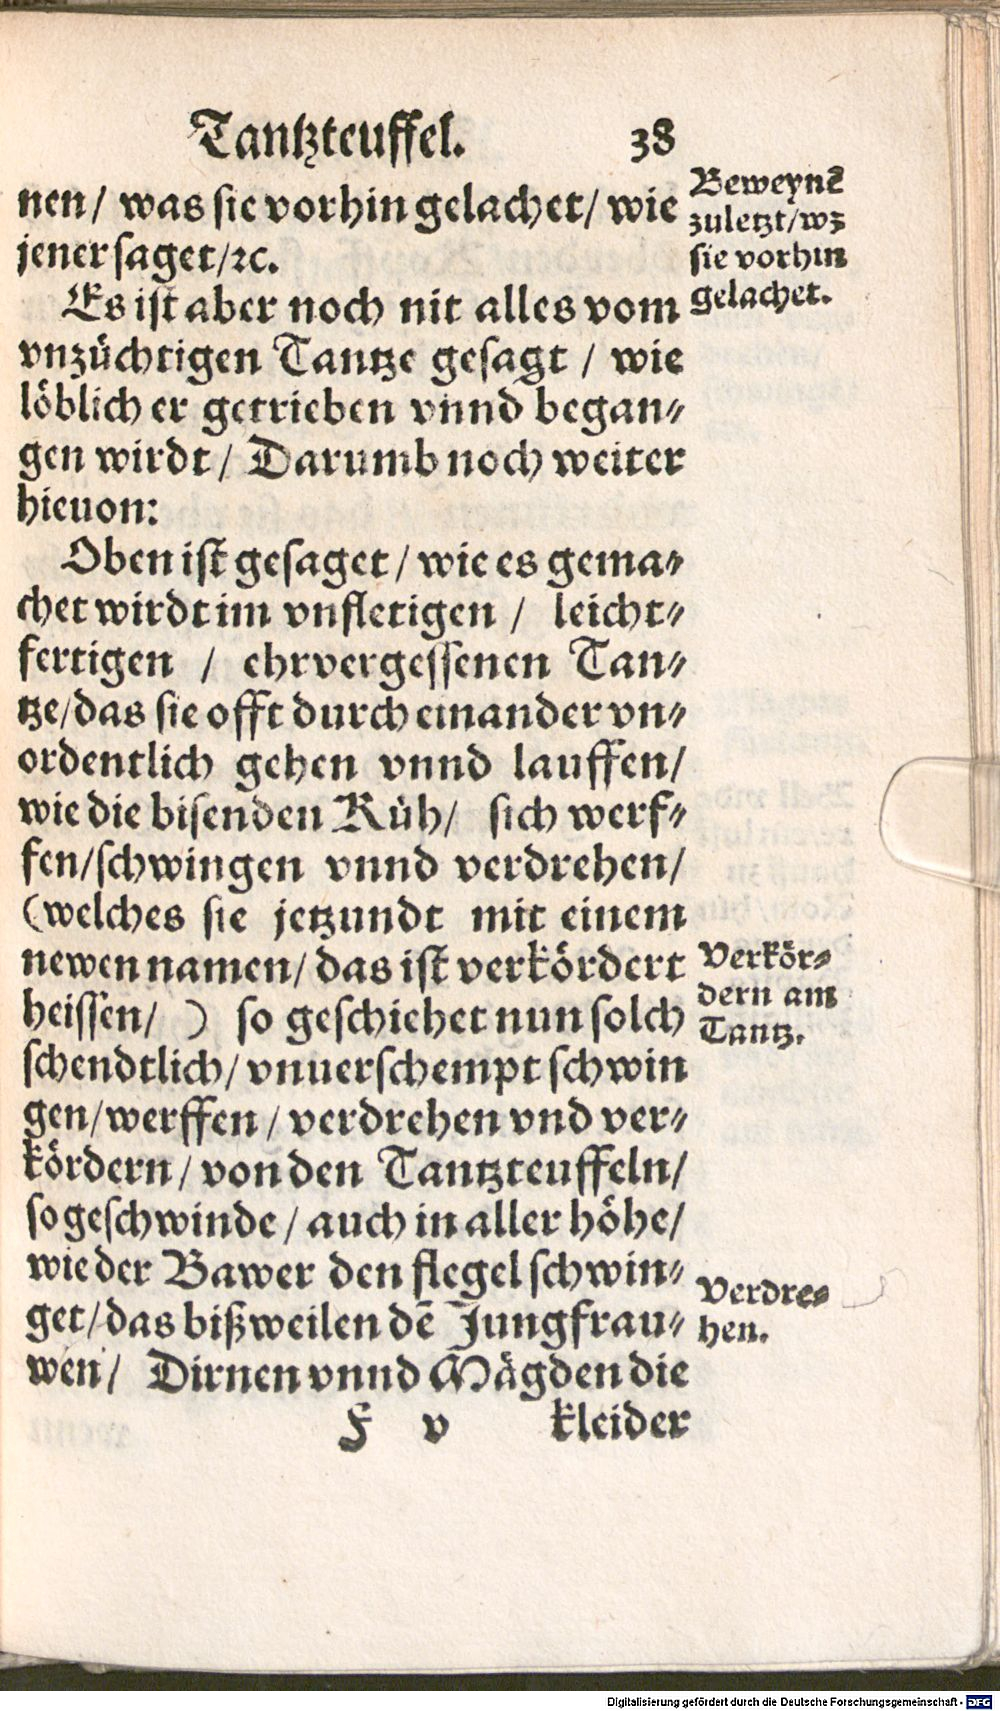 Tantzteuffel. 38
nen/ was sie vorhin gelachet/ wie
jener saget/ꝛc.
Es ist aber noch nit alles vom
vnzüchtigen Tantze gesagt / wie
löblich er getrieben vnnd began⸗
gen wirdt/ Darumb noch weiter
hieuon:
Oben ist gesaget/ wie es gema⸗
chet wirdt im vnfletigen / leicht⸗
fertigen / ehrvergessenen Tan⸗
tze/das sie offt durch einander vn⸗
ordentlich gehen vnnd lauffen/
wie die bisenden Küh/ sich werf⸗
fen/schwingen vnnd verdrehen/
(welches sie jetzundt mit einem
newen namen/ das ist verkördert
heissen/ ) so geschiehet nun solch
schendtlich/ vnuerschempt schwin
gen/werffen / verdrehen vnd ver⸗
kördern/ von den Tantzteuffeln/
so geschwinde/ auch in aller höhe/
wie der Bawer den flegel schwin⸗
get/das bißweilen dē Jungfrau⸗
wen/ Dirnen vnnd Mägden die
F v kleider
Beweynē
zuletzt/wz
sie vorhin
gelachet.
Verkör⸗
dern am
Tantz.
Verdre⸗
hen.
Digitalisierung gefördert durch die Deutsche Forschungsgemeinschaft - DFG